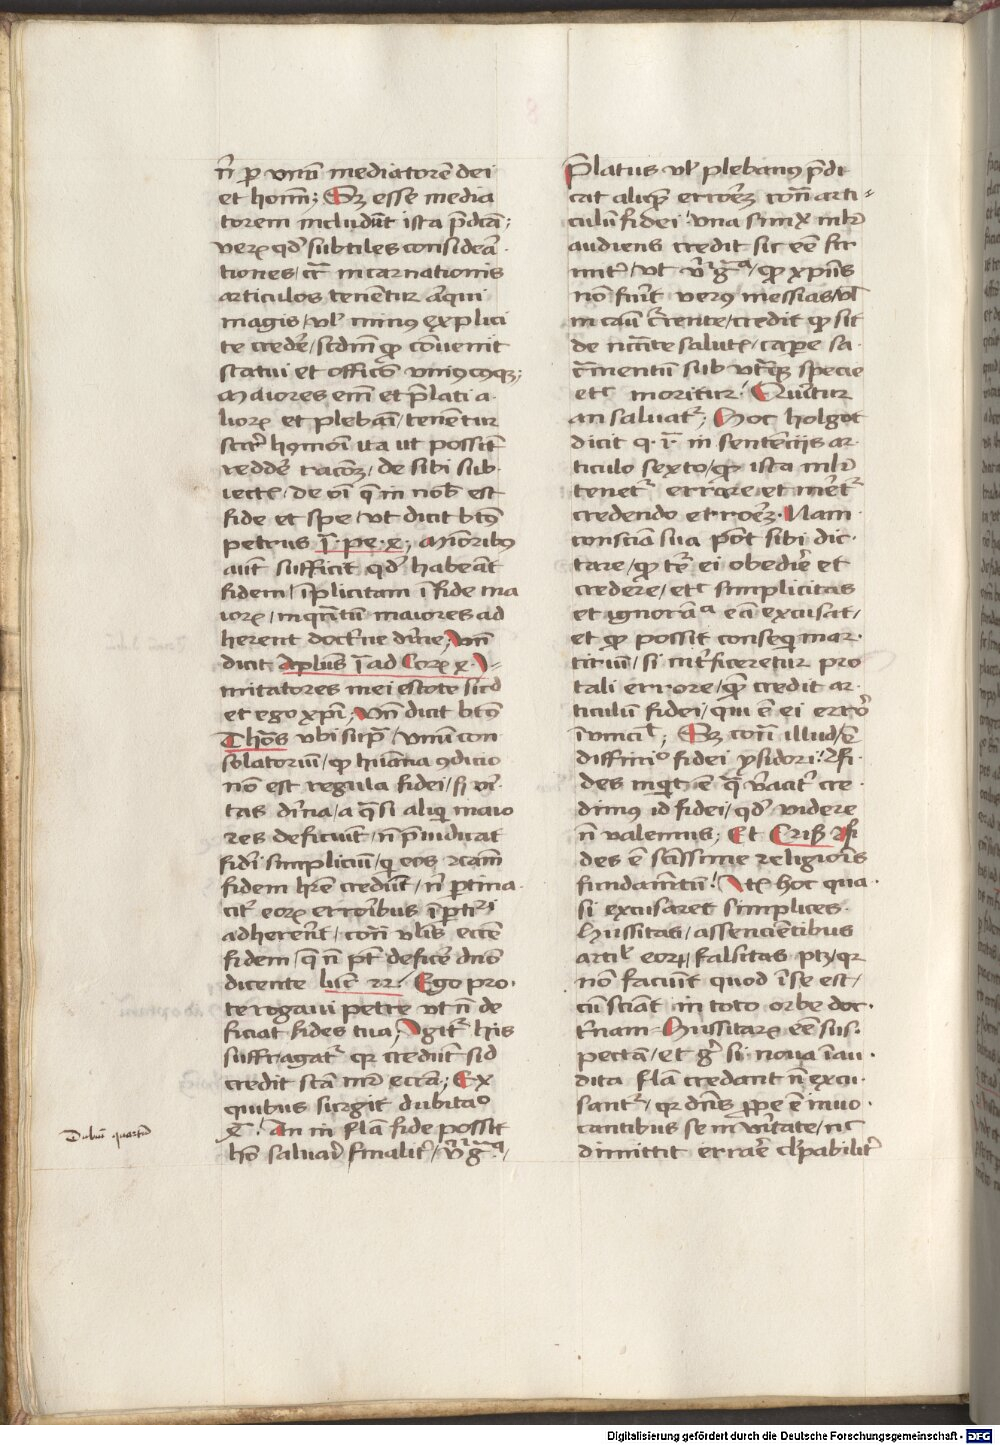 n̄ ꝑ vnuȝ mediatorē dei
et hoīm; Sȝ esse media
torem includūt ista p̄dcā;
verꝝ qd' subtiles considerā
tiones / circa incarnationis
articulos tenētur aliqui
magis / vl' minꝰ explici
te crede' / scdm̄ qꝫ cōuenit
statui et officio vniꝰcuiqꝫ;
Maiores em̄ et p̄lati a
liorꝝ et plebani / tenentur
ita ut possit
redde' racōȝ / de sibi sub
iectꝭ / de oī q̄ in nob' est
fide et spe / vt dicit btūs
petrus ; Minoribꝰ
aut̄ sufficit qd' habeāt
fidem / īplicitam ī fide ma
iorꝝ / inqn̄tū maiores ad
herent doctrīe diuīe; Vn̄
dicit Apl̄us ad Cor
mitatores mei estote sicud
et ego xp̄i; Vn̄ dicit btūs
Thōs vbi sup̄ / vnuȝ con
solatoriū / qꝫ humāna ꝯdicio
nō est regula fidei / sȝ vēi
tas diuīna / a q̄ si aliqui maio
res deficiūt / n̄ p̄iudicat
fidei simpliciū / qui eos rcām
fidem hr̄e credūt / nⁱ ꝑtina
citer eorꝝ erroribus
adherent / cont̄ vl̄is eccē
fidem / q̄ n̄ pt̄ defice' dn̄o
dicente luc̄ 22 : Ego pro
te rogaui petre vt n̄ de
ficiat fides tua; Igitᵣ his
suffragatᵣ qr credūt sicd
credit scā mr̄ eccā; Ex
quibus surgit dubitaᵒ
An in fl̄a fide possit
hō saluari finalitᵣ / vᵣ̄ gᵃ /
Dubiū quartū
P̄latus vl' plebanꝰ p̄di
cat aliqȝ erroreȝ cont̄ arti
culū fidei / vna simꝑlx ml̄r
audiens credit sic eē fir
mitᵣ / vt vᵣ̄ gᵃ / qꝫ xpūs
nō fuīt verꝰ messias / vl'
credit qꝫ sit
de necc̄itate salutꝭ / cape' sa
cr̄mentum sub vtraqꝫ specie
etc̄ moritur / Queritur
an saluatᵣ; Hoc holgot
dicit q. ī. in sentencijs ar
ticulo sexto / qꝫ ista ml̄r
tenetᵣ errare et meretᵣ
credendo erroreȝ. Nam
consciā sua pōt sibi dic
tare / qꝫ tenetᵣ ei obedire et
credere / etc̄ simplicitas
et ignorāᵃ eā excusat /
et qꝫ possit consequi mar
tiriū / si interficeretur pro
tali errore / quē credit ar
ticulū fidei / qui ē ei error
īuincil'; Sȝ cont̄ illud / ē
diffinitio fidei ysidori : fi
des inquit ē q̄ vēracitᵣ cre
dimus id fidei / qd' videre
n̄ valemus; Et Cris fi
des ē sctissime religiōis
fundamētū ! Itē hoc qua
si excusaret simplices
Hussitas / assencientibus
articl' eorū / falsitas ptȝ / qr
nō faciūt quod ī se est /
cū sciāt in toto orbe doc
trinam Hussitarꝝ eē sus
pectā / et gͥ si noua īau
dita fl̄a credant n̄ excu
santᵣ / qr dn̄s prope ē inuo
cantibus se in vēritate / nec
dimittit errare cul'pabilitᵣ
Digitalisierung gefördert durch die Deutsche Forschungsgemeinschaft - DFG